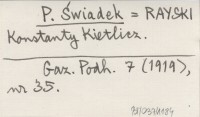 P. Świadek = RAYSKI
Konstanty Kietlicz.
Gaz. Podh. 7 (1919),
nr 35.